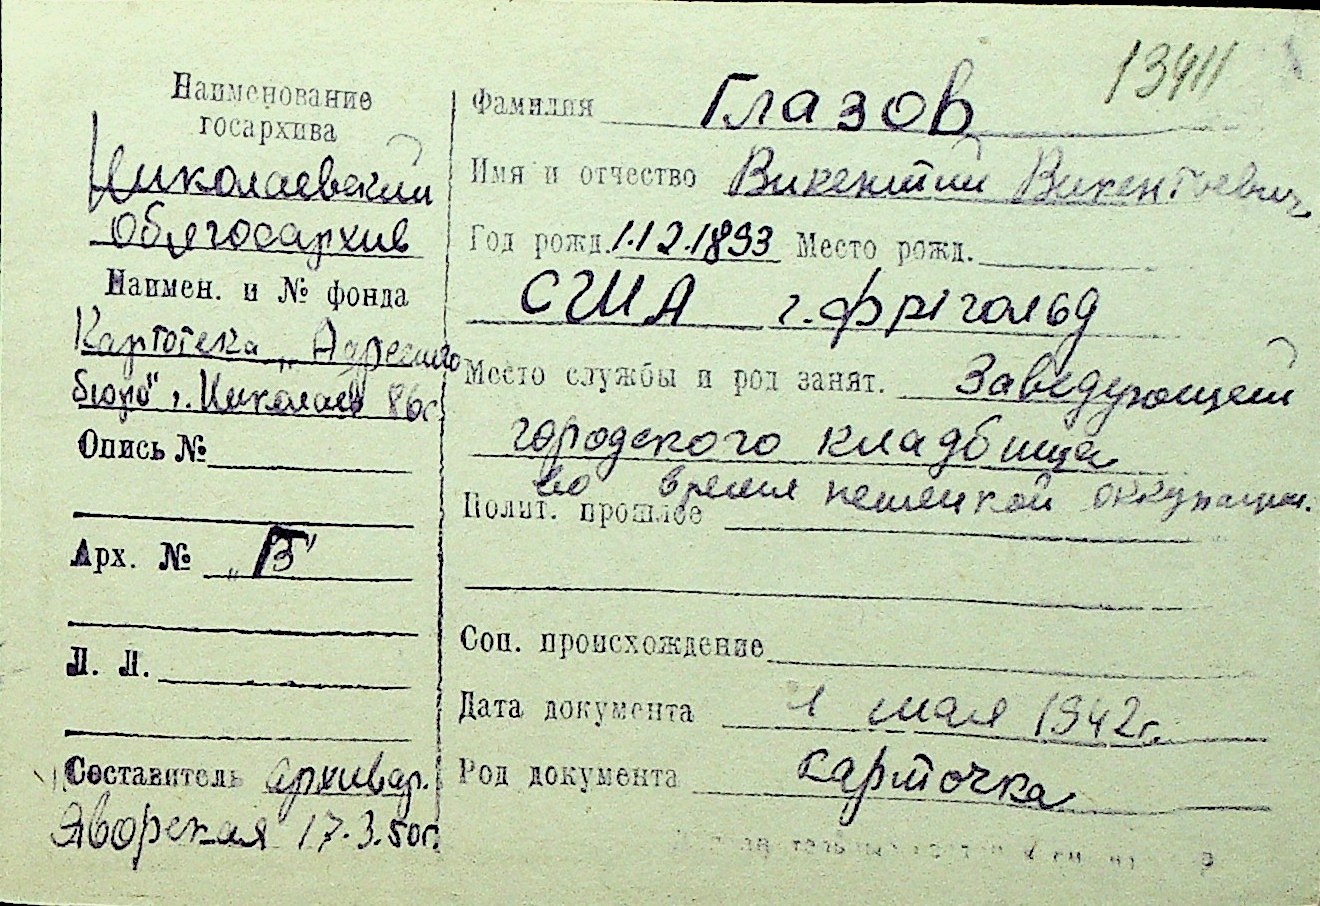 13411
Наименование
госархива
Николаевский
Облгосархив
Наимен. и № фонда
Картотека „Адресного
бюро" г. Николаев
Опись №
Арх. № „Б"
Л. Л.
Составитель архивар.
Яворская 17.3.50г.
Фамилия Глазов
Имя и отчество Викентий Викентьевич
Год рожд. 1.12.1893 Место рожд.
США г. Фриголд
Место службы и род занят. Заведующий
городского кладбища
во время немецкой оккупации.
Полит. прошлое
Соц. происхождение
Дата документа 1 мая 1942г.
Род документа карточка